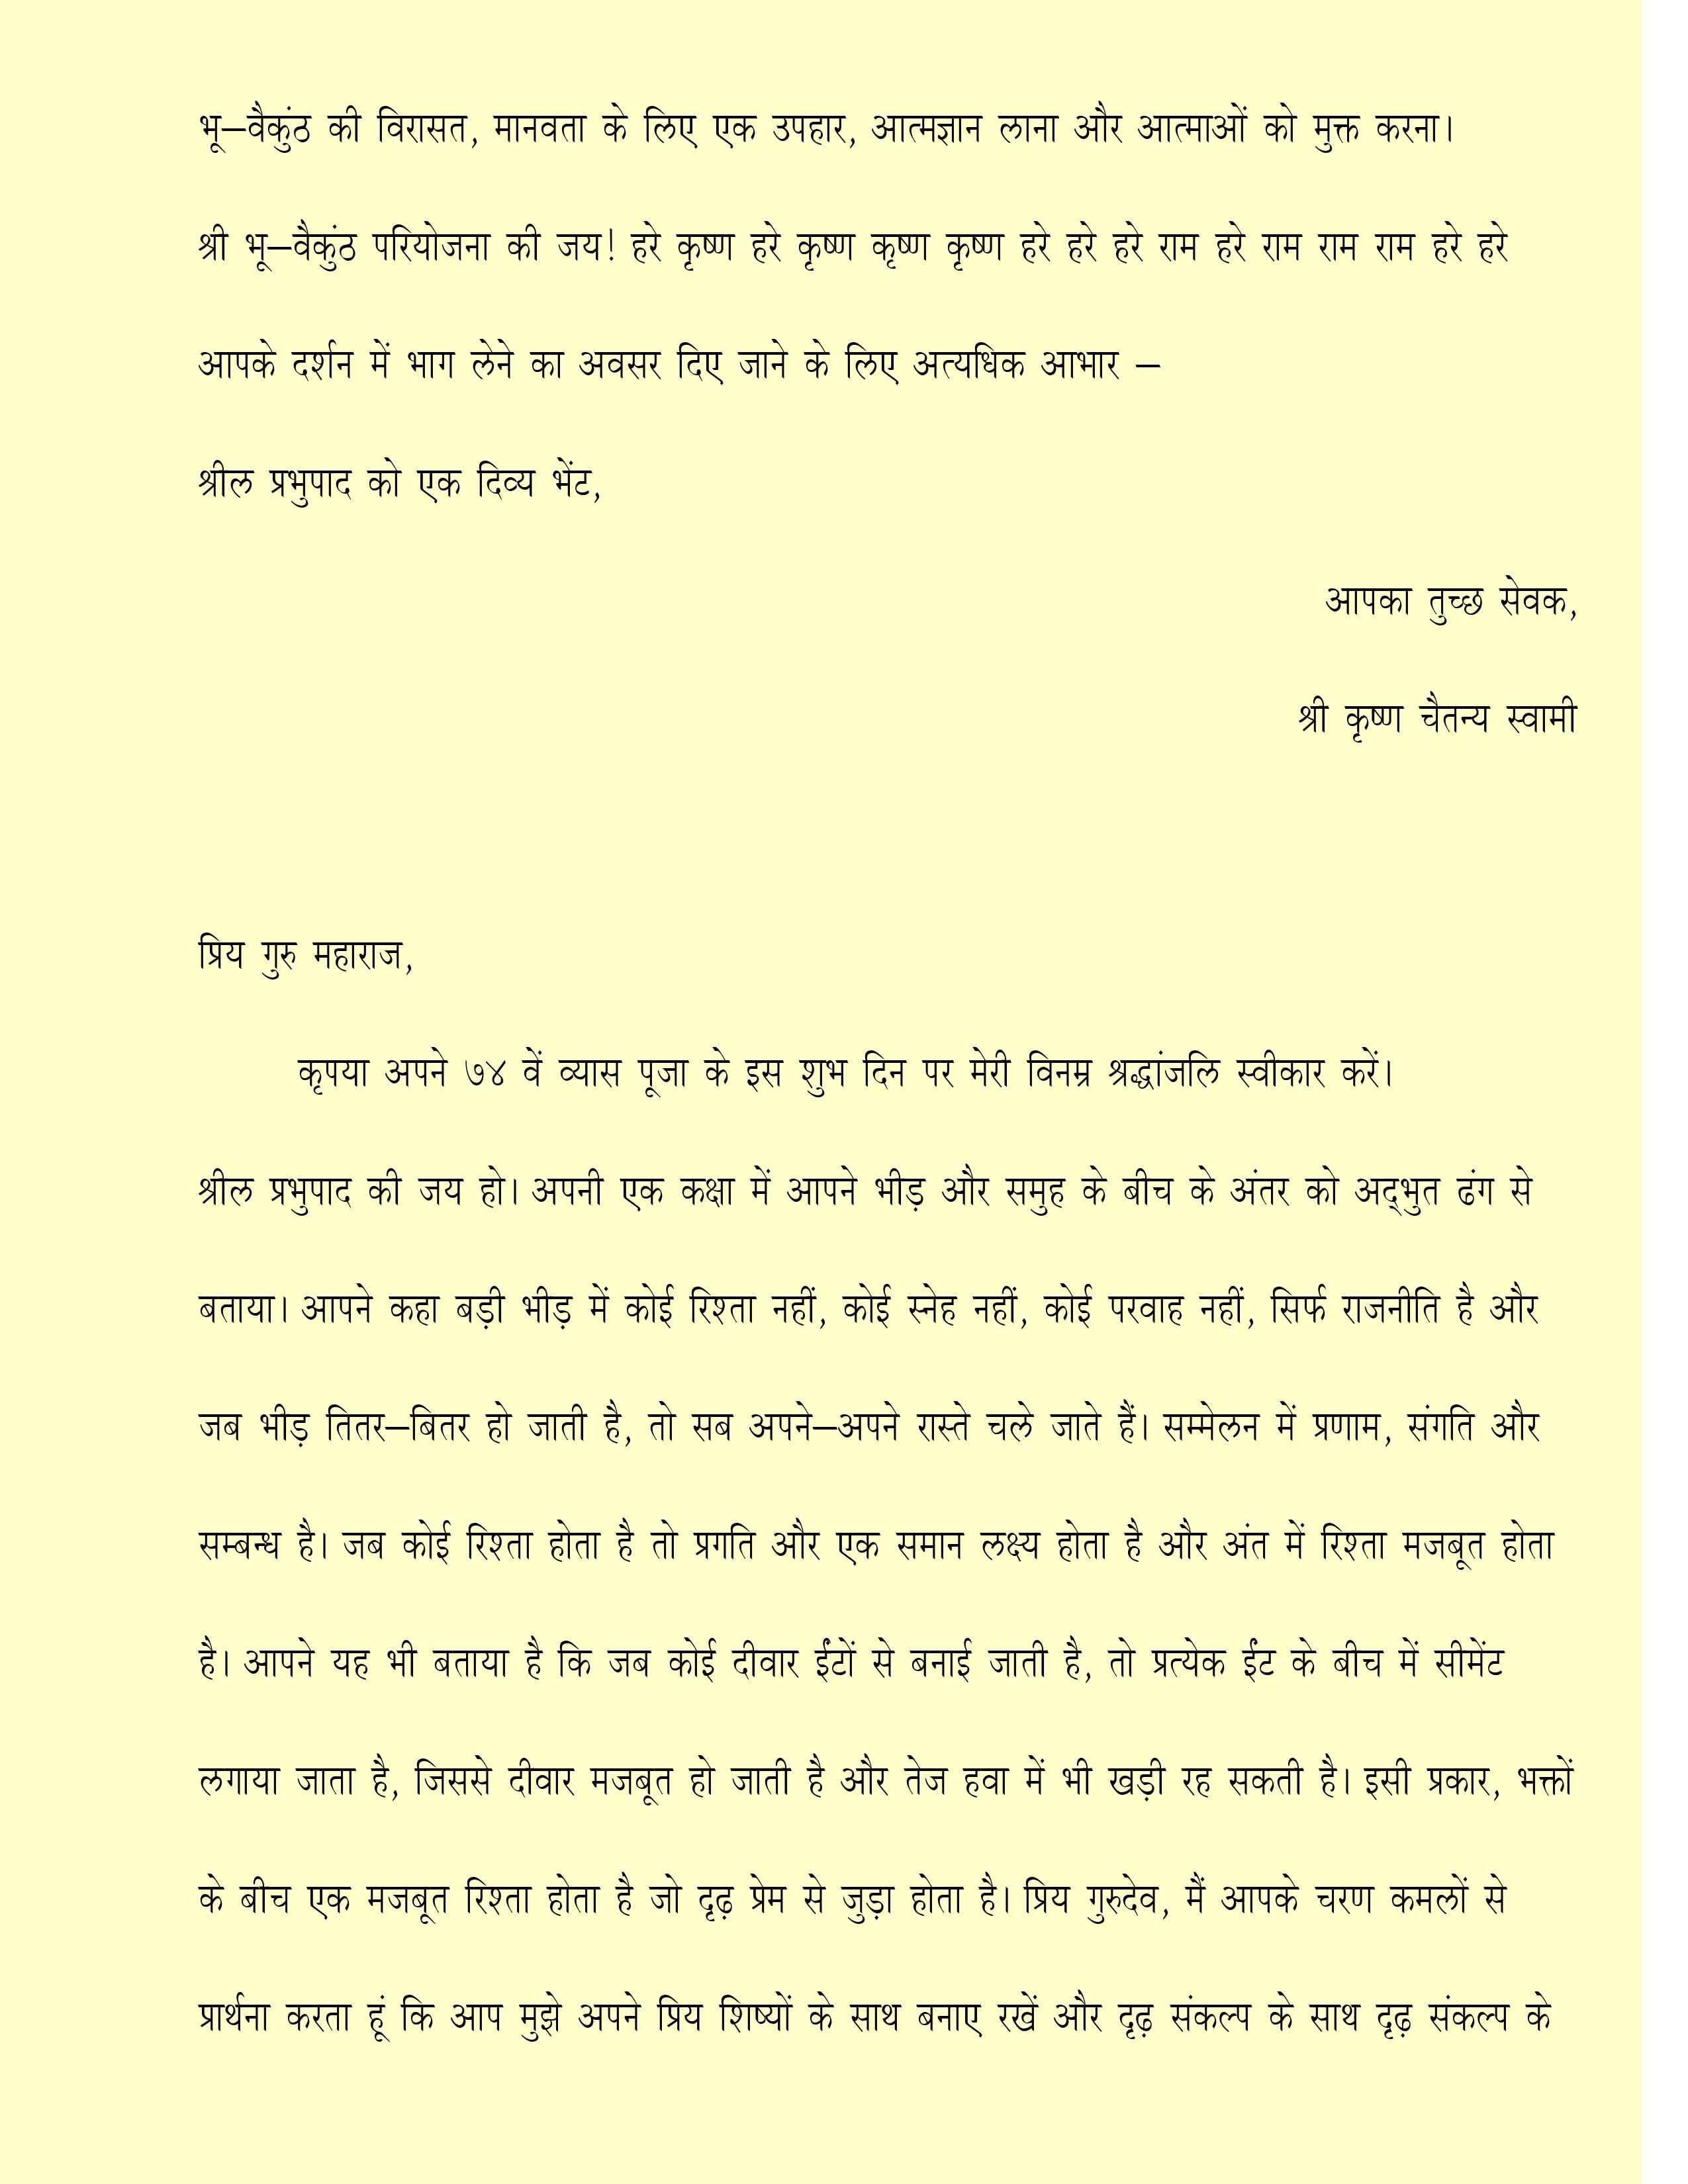 भू–वैकुंठ की विरासत, मानवता के लिए एक उपहार, आत्मज्ञान लाना और आत्माओं को मुक्त करना।
श्री भू–वैकुंठ परियोजना की जय! हरे कृष्ण हरे कृष्ण कृष्ण कृष्ण हरे हरे हरे राम हरे राम राम राम हरे हरे
आपके दर्शन में भाग लेने का अवसर दिए जाने के लिए अत्यधिक आभार –
श्रील प्रभुपाद को एक दिव्य भेंट,
आपका तुच्छ सेवक,
श्री कृष्ण चैतन्य स्वामी
प्रिय गुरु महाराज,
कृपया अपने ७४ वें व्यास पूजा के इस शुभ दिन पर मेरी विनम्र श्रद्धांजलि स्वीकार करें।
श्रील प्रभुपाद की जय हो। अपनी एक कक्षा में आपने भीड़ और समुह के बीच के अंतर को अद्‌भुत ढंग से
बताया। आपने कहा बड़ी भीड़ में कोई रिश्ता नहीं, कोई स्नेह नहीं, कोई परवाह नहीं, सिर्फ राजनीति है और
जब भीड़ तितर–बितर हो जाती है, तो सब अपने–अपने रास्ते चले जाते हैं। सम्मेलन में प्रणाम, संगति और
सम्बन्ध है। जब कोई रिश्ता होता है तो प्रगति और एक समान लक्ष्य होता है और अंत में रिश्ता मजबूत होता
है। आपने यह भी बताया है कि जब कोई दीवार ईंटों से बनाई जाती है, तो प्रत्येक ईंट के बीच में सीमेंट
लगाया जाता है, जिससे दीवार मजबूत हो जाती है और तेज हवा में भी खड़ी रह सकती है। इसी प्रकार, भक्तों
के बीच एक मजबूत रिश्ता होता है जो दृढ़ प्रेम से जुड़ा होता है। प्रिय गुरुदेव, मैं आपके चरण कमलों से
प्रार्थना करता हूं कि आप मुझे अपने प्रिय शिष्यों के साथ बनाए रखें और दृढ़ संकल्प के साथ दृढ़ संकल्प के